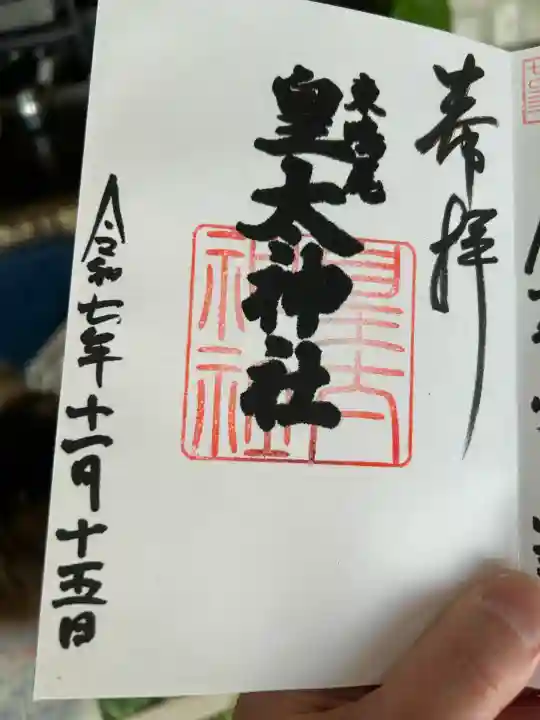 奉拝
東高尾
皇太神社
皇太神社
令和七年十一月十五日